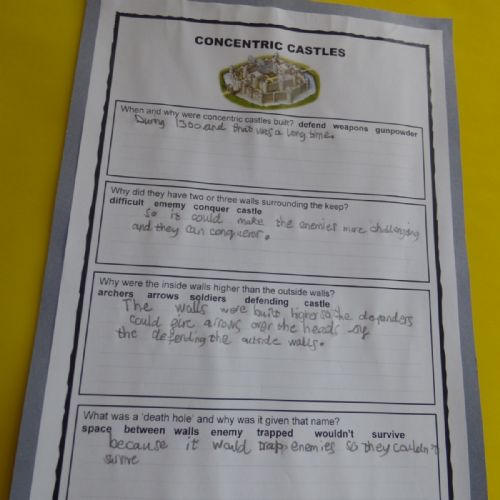 CONCENTRIC CASTLES
When and why were concentric castles built? defend weapons gunpowder
During 1300 and that was a long time.
Why did they have two or three walls surrounding the keep?
difficult enemy conquer castle
So it could make the enemies more challenging
and they can conqueror.
Why were the inside walls higher than the outside walls?
archers arrows soldiers defending castle
The walls were built higher so the defenders
could fire arrows over the heads of
the defending the outside walls.
What was a 'death hole' and why was it given that name?
space between walls enemy trapped wouldn't survive
because it would trap enemies so they couldn't
survive